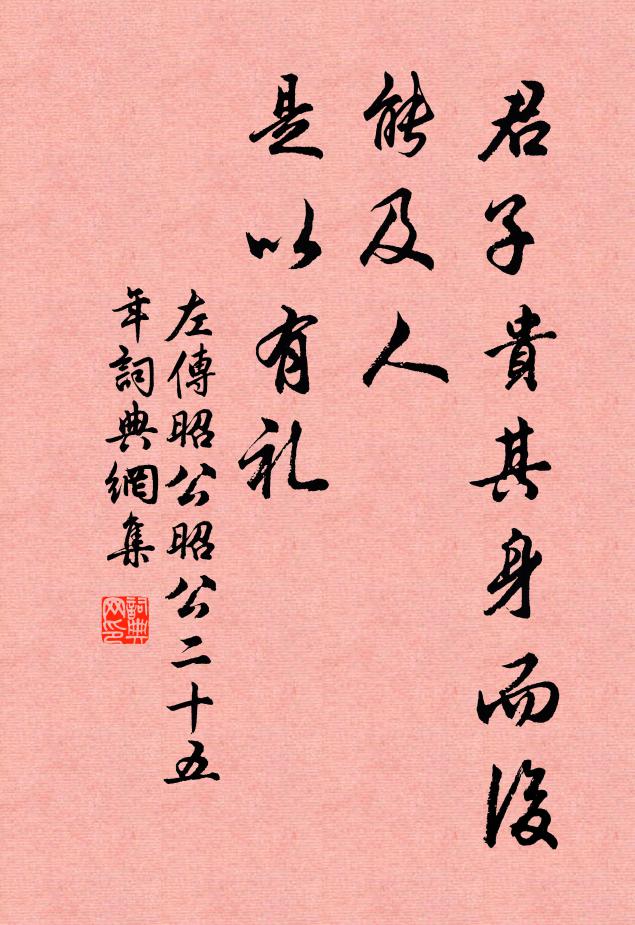 君子貴其身而後
能及人
是以有礼
左傳昭公昭公二十五
年詞典網集
詞典
网印